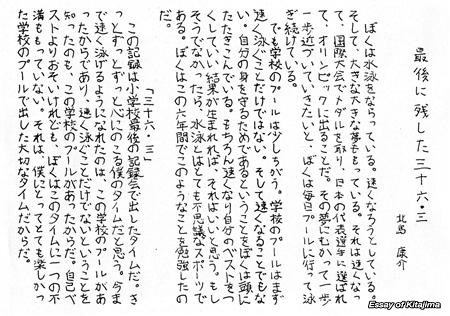 最後に残した三十六・三
北島 康介
ぼくは水泳をならっている。速くなろうとしている。
そして、大きな大きな夢をもっている。それは速くなっ
て、国際大会でメダルを取り、日本の代表選手に選ばれ
て、オリンピックに出ることだ。その夢にむかって一歩
一歩近づいていきたいと、ぼくは毎日プールに行って泳
ぎ続けている。
でも学校のプールは少しちがう。学校のプールはまず
速く泳ぐことだけではない。そして速くなることでもな
い。自分の身を守るためであるということをぼくは頭に
たたきこんでいる。もちろん速くなり自分のベストをつ
くしていい結果が生まれれば、それはいいと思う。もし
そうでなかったら、水泳とはとても不思議なスポーツで
ある。ぼくはこの六年間でこのようなことを勉強した。
「三十六・三」
この記録は小学校最後の記録会で出したタイムだ。き
っとずっとずっと心にのこる僕のタイムだと思う。今ま
で速く泳げるようになれたのは、この学校のプールがあ
ったからであり、速く泳ぐことだけでないということを
知ったのも、この学校のプールがあったからだ。自己ベ
ストよりおそいけれども、ぼくはこのタイムに一つの不
満ももっていない。それは、僕にとってとても楽しかっ
た学校のプールで出した大切なタイムだからだ。
Essay of Kitajima